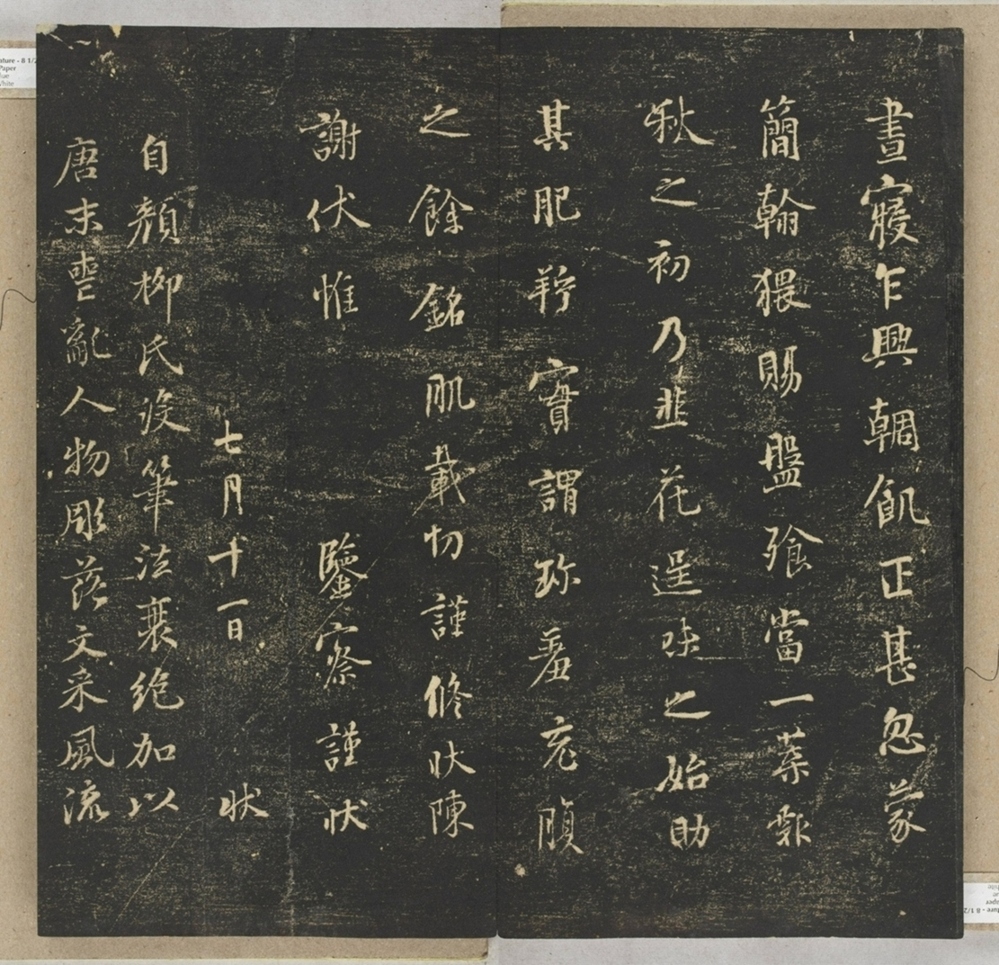 晝寢乍興輖飢正甚忽蒙
簡翰猥賜盤飧當一葉報
秋之初乃韭花逞味之始助
其肥羜實謂珎羞充腹
之餘銘肌載切謹修狀陳
謝伏惟
鑒察謹狀
七月十一日
狀
自顏柳氏沒筆法衰絕加以
唐末喪亂人物彫落文采風流